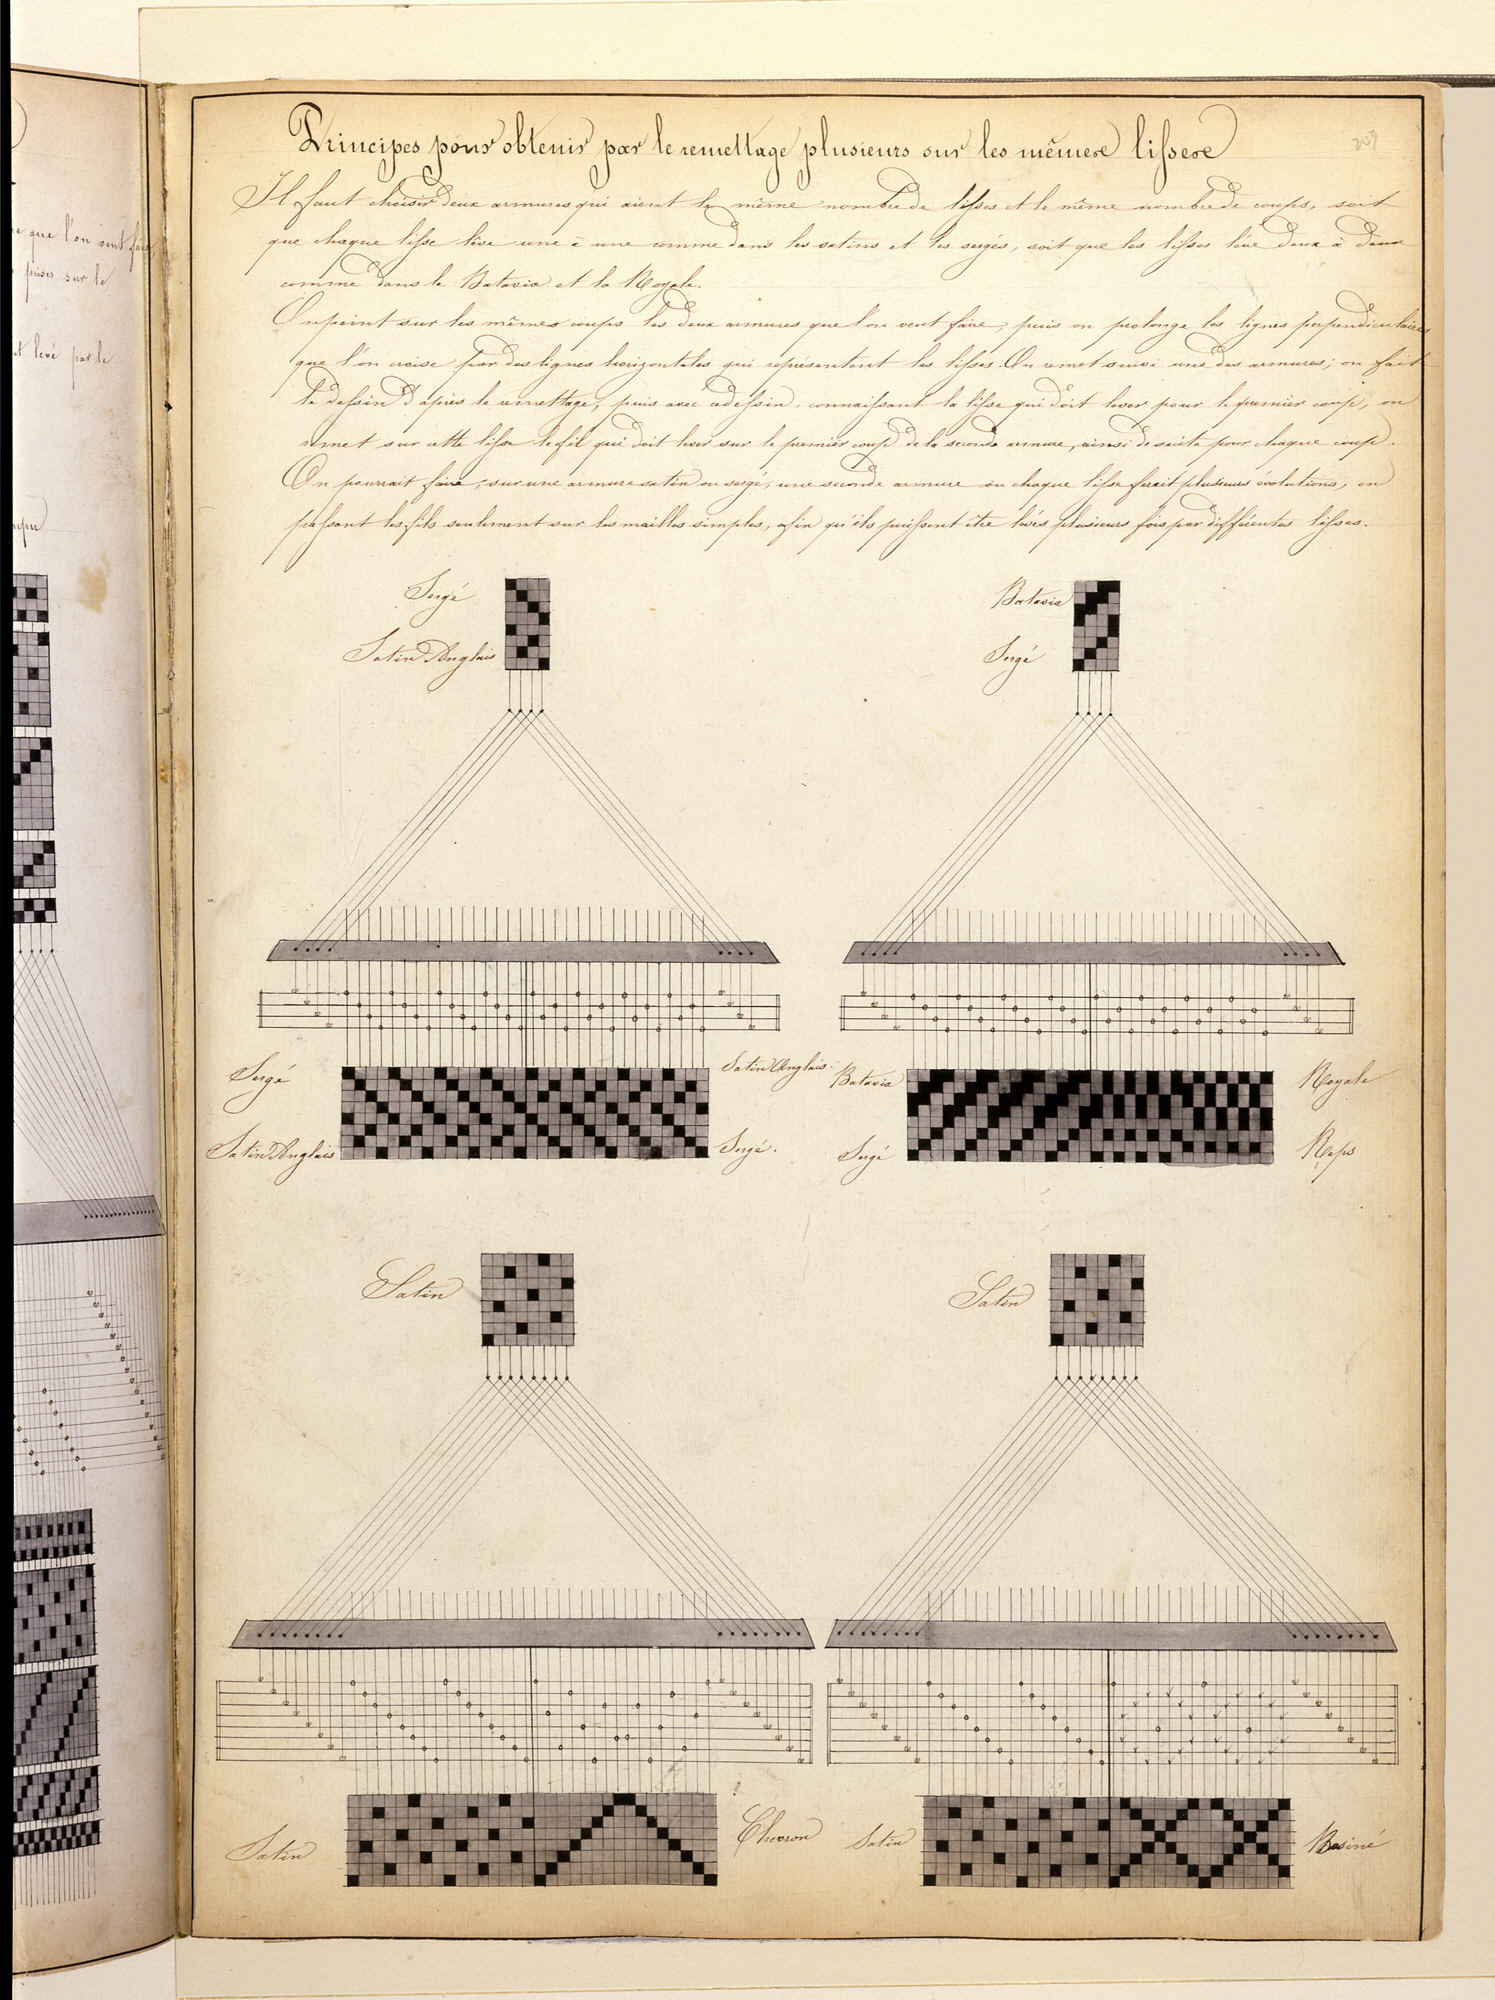 que l'on veut faire
prises sur le
levé par le
Principes pour obtenir par le remettage plusieurs sur les mêmes lisses
209
Il faut choisir deux armures qui aient le même nombre de lisses et le même nombre de coups, soit
que chaque lisse lève une à une comme dans les satins et les sergés, soit que les lisses lève deux à deux
comme dans le Batavia et la Royale.
On peint sur les mêmes coups les deux armures que l'on veut faire, puis on prolonge les lignes perpendiculaires
que l'on croise par des lignes horizontales qui représentent les lisses. On remet suivi une des armures; on fait
le dessin d'après le remettage, puis avec ce dessin, connaissant la lisse qui doit lever pour le premier coup, on
remet sur cette lisse le fil qui doit lever sur le premier coup de la seconde armure, ainsi de suite pour chaque coup.
On pourrait faire, sur une armure satin ou sergé, une seconde armure ou chaque lisse ferait plusieurs évolutions, en
passant les fils seulement sur les mailles simples, afin qu'ils puissent être levés plusieurs fois par différentes lisses.
Sergé
Satin Anglais
Batavia
Sergé
Sergé
Satin Anglais
Satin Anglais
Sergé.
Batavia
Royale
Sergé
Reps
Satin
Satin
Satin
Chevron
Satin
Basiné